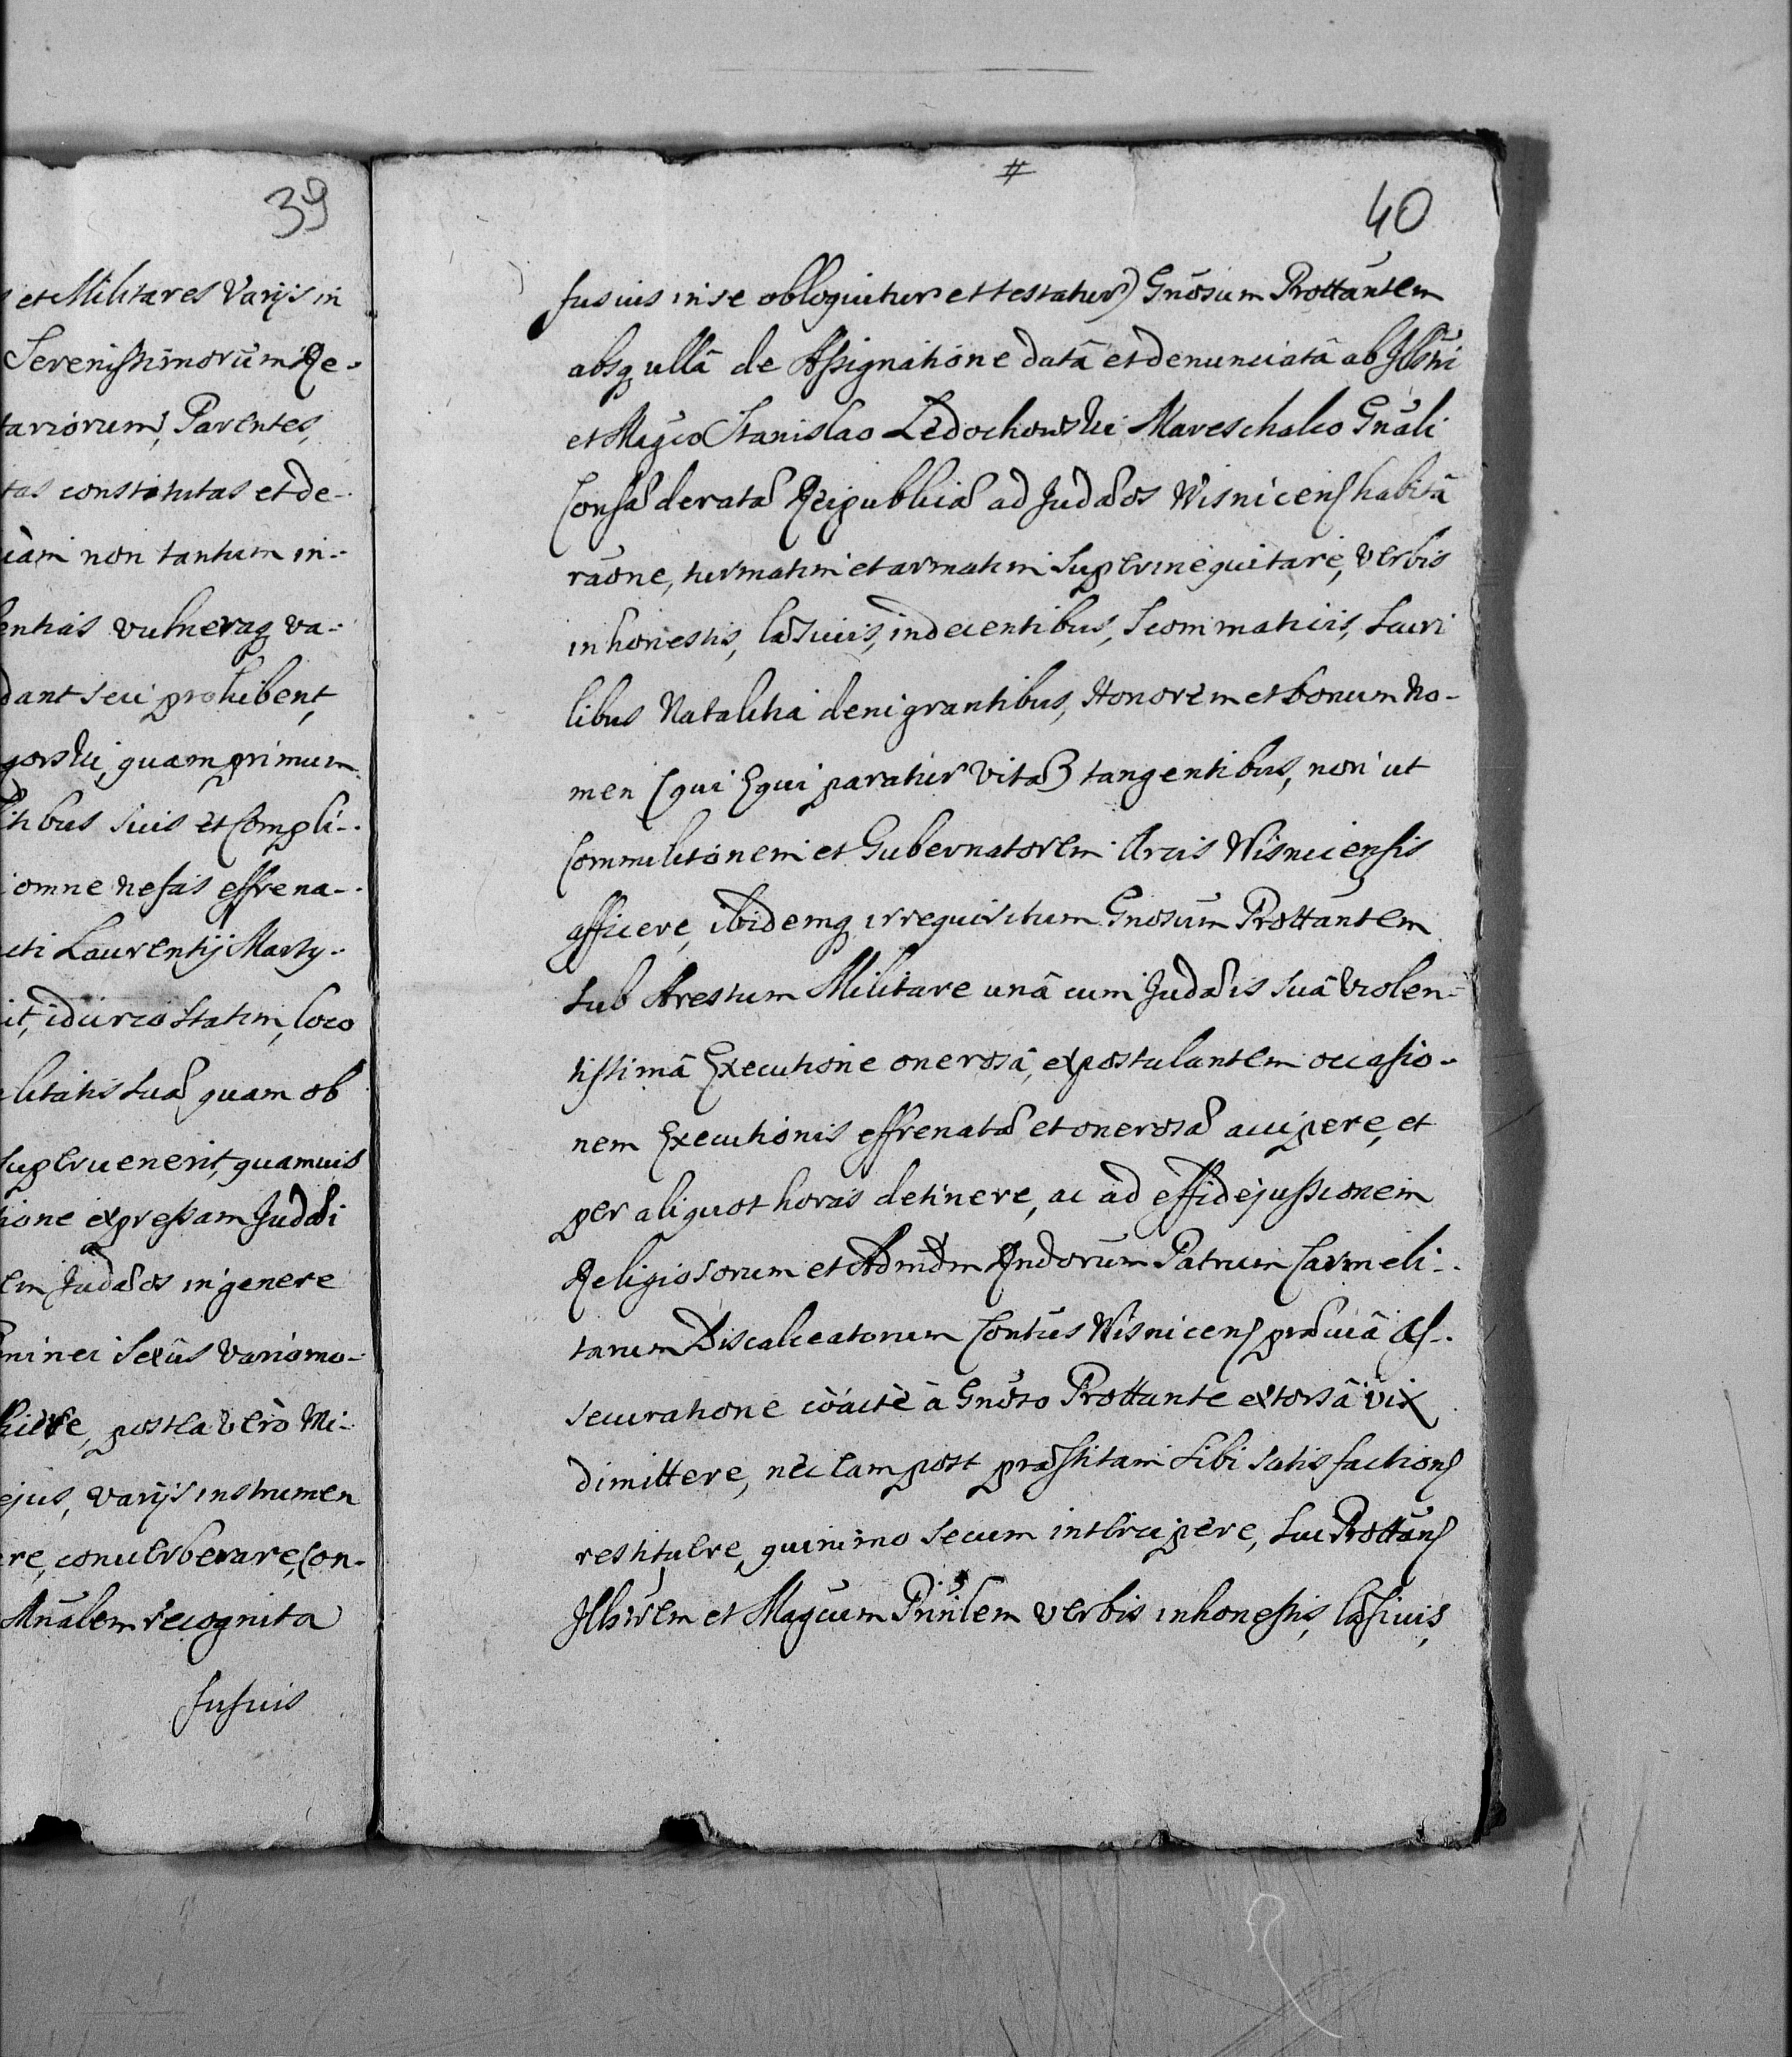 39
et Militares Varijs in
Serenissimorum Re-
tariorum, Parentes,
tas constitutas et de-
uam non tantum in-
entias vulneraq va-
dant seu prohibent,
gorski, quamprimum
litibus suis et Compli-
omne nefas effrena-
cti Laurentij Marty-
it, idcirco statim, loco
litatis suæ quam ob
superuenerit, quamuis
tione expressam Judæi
em Judæos in genere
minei sexûs vario mo-
postea verò Mi-
ejus, varijs instrumen
re, conuerberare, Con-
Mnalem recognita
fusius
#
40
fusius in se obloquitur et testatur) Gnosum Prottantem
absq ullâ de Assignatione datâ et denunciatâ ab Illstri
et Mgco Stanislao Ledochowski Mareschalco Gnali
Confæderatæ Reipublicæ ad Judæos Wisnicens habitâ
raone, turmatim et armatim superinequitare, verbis
inhonestis, lasciuis, indecentibus, scommaticis, scuri
libus Natalitia denigrantibus, Honorem et bonum No-
men (qui Equi paratur vitæ) tangentibus, non ut
Commilitonem et Gubernatorem Arcis Wisnicensis
afficere, ibidemq irrequisitum Gnosum Prottantem
sub Arestum Militare unâ cum Judæis suâ violen-
tissimâ Executione onerosâ, expostulantem occasio-
nem Executionis effrenatæ et onerosæ accipere, et
per aliquot horas detinere, ac ad effidejussionem
Religiosorum et Admdm Rndorum Patrum Carmeli-
tarum Discalceatorum Contus Wisnicens præuiâ As-
securatione coáctè â Gnoso Prottante extorsâ vix
dimittere, nec eam post præstitam sibi satisfaction
restituere, quinimo secum intercipere, suc Prottan
Illstrem et Magcum Prinlem verbis inhonestis, lasciuis,